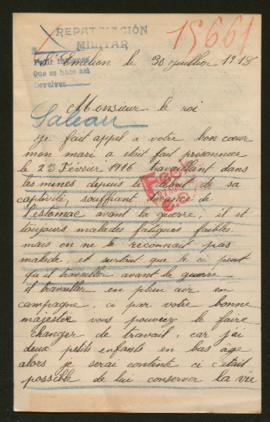 REPATRIACIÓN
MILITAR
15661
St Emilion le 30 juillet 1918
Que se hace así
Monsieur le roi
Saleau
Je fait appel a votre bon cœur
mon mari a était fait prisonnier
le 23 Février 1916 travaillant dans
les mines depuis le début de sa
captivité, souffrant de
l'estomac avant la guerre, il et
toujours malades fatigues faibles
mais on ne le reconnait pas
malade, et surtout que le ci peut
qu'il travailler avant la guerre
il travailler en plein air en
campagne, ci par votre bonne
majester vous pouvez le faire
changer de travail, car j'ai
deux petits enfants en bas âge
alors je serai contente ci était
possible de lui conserver la vie